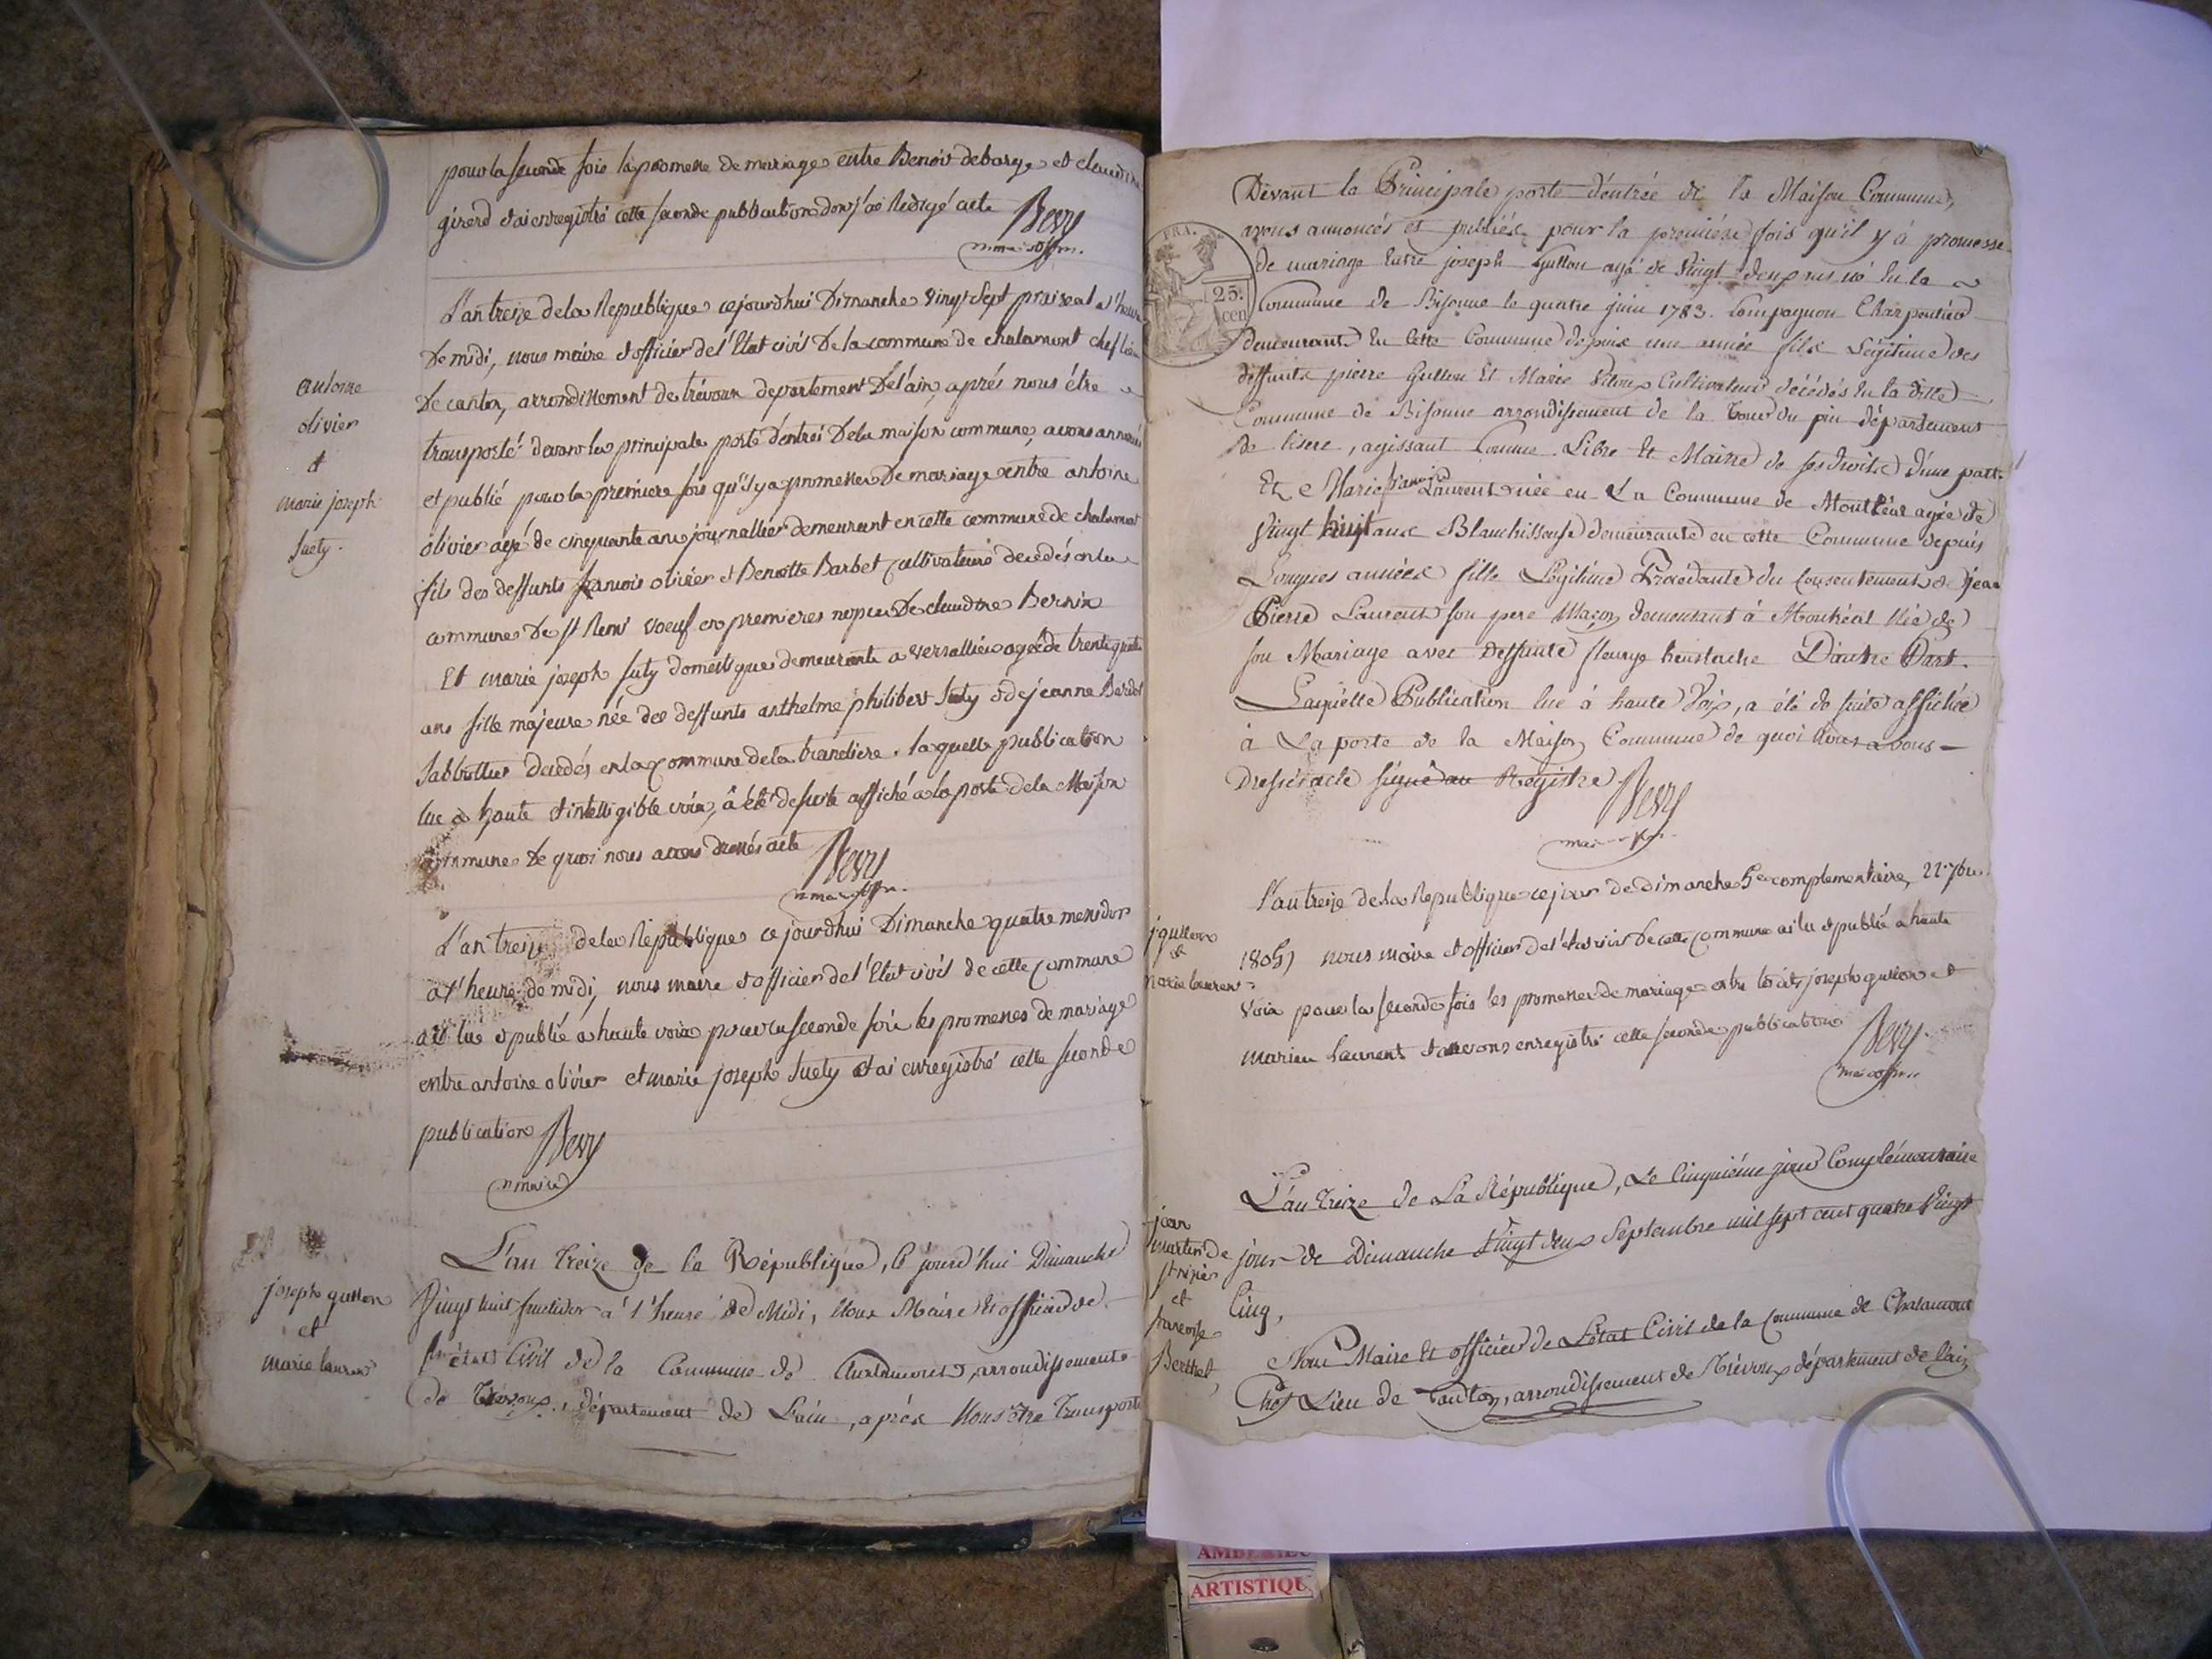 pour la seconde fois la promesse de mariage entre Benoit debarge et claudine
girerd et ai enregistré cette seconde publication dont j'ai redigé acte
L'an treize de la Republique cejourdhui Dimanche vingt sept prairial a l'heure
De midi, nous maire et officier de l'Etat civil De la commune de chalamont chef lieu
De canton, arrondissement de trévoux departement De l'ain, aprés nous étre
transporté devant la principale porte d'entrée De la maison commune, avons annoncé
et publié pour la premiere fois qu'il y a promesse De mariage entre antoine
olivier agé de cinquante ans journallier demeurant en cette commune de chalamont
fils des deffunts francois olivier et Benoitte Barbet cultivateurs decedés en la
commune De st Remi voeuf en premieres nopces De claudine Bernix
Et marie joseph suty domestique demeurante a versallieu agée de trente quatre
ans fille majeure née des deffunts anthelme philibert suty et de jeanne
decedés en la commune de la tranclière. laquelle publication
lue a haute et intelligible voix, a été de suite affiché a la porte de la Maison
commune De quoi nous avons dressés acte
antoine
olivier
et
marie joseph
suety.
L'an treize de la Republique ce jourdhui Dimanche quatre messidor
a l'heure de midi, nous maire et officier de l'Etat civil de cette commune
ai lue et publié a haute voix pour la seconde fois les promesses de mariage
entre antoine olivier et marie joseph suety et ai enregistré cette seconde
publication
maire
joseph gullon
et
marie laurent
L'an treize de la République, ce jourd'hui Dimanche
Vingt huit fructidor à l'heure de Midi, Nous Maire et officier de
l'état Civil de la Commune de Chalamont, arrondissement
de Trevoux, département de L'ain, après Nous être transporté
Devant la Principale porte d'entrée de la Maison Commune,
avons annoncés et publiés pour la première fois qu'il y à promesse
de mariage Entre joseph Gullon agé de Vingt deux ans né En la
Commune de Bisonne le quatre juin 1783. Compagnon Charpentier
demeurant En Cette Commune depuis une année fils Légitime des
deffunts pierre Gullon Et Marie Cultivateurs décédés En la ditte
Commune de Bisonne arrondissement de la Tour du pin département
de lisere, agissant Comme Libre Et Maitre de ses droits D'une part.
Et Marie françoise Laurent née en La Commune de Montréal agée de
Vingt huit ans Blanchisseuse demeurante en cette Commune depuis
Longues années fille Légitime Procédante du Consentement de jean
Pierre Laurent son pere Maçon demeurant à Montréal Née de
son Mariage avec Deffunte fleurye heustache D'autre Part.
Laquelle Publication lue à haute Voix, a été de suite affichée
à La porte de la Maison Commune de quoi Nous avons
Dressés acte signé au Registre
FRA.
25.
cen
L'an treize de la Republique ce jour de dimanche 5e complementaire, 22 7bre
1805, nous maire et officier de l'etat civil De cette commune ai lu et publié a haute
voix pour la seconde fois les promesses de mariage entre les dits joseph gullon et
marie laurent et avons enregistré cette seconde publication
j gullon
et
marie laurent
L'an treize de La République, Le Cinquième jour Complémentaire
jour de Dimanche Vingt deux Septembre mil sept cent quatre Vingt
Cinq,
Nous Maire Et officier de L'état Civil de la Commune de Chalamont
Chef Lieu de Canton, arrondissement de Trévoux département de l'ain,
jean
martin de
et
francoise
Berthet
ARTISTIQU